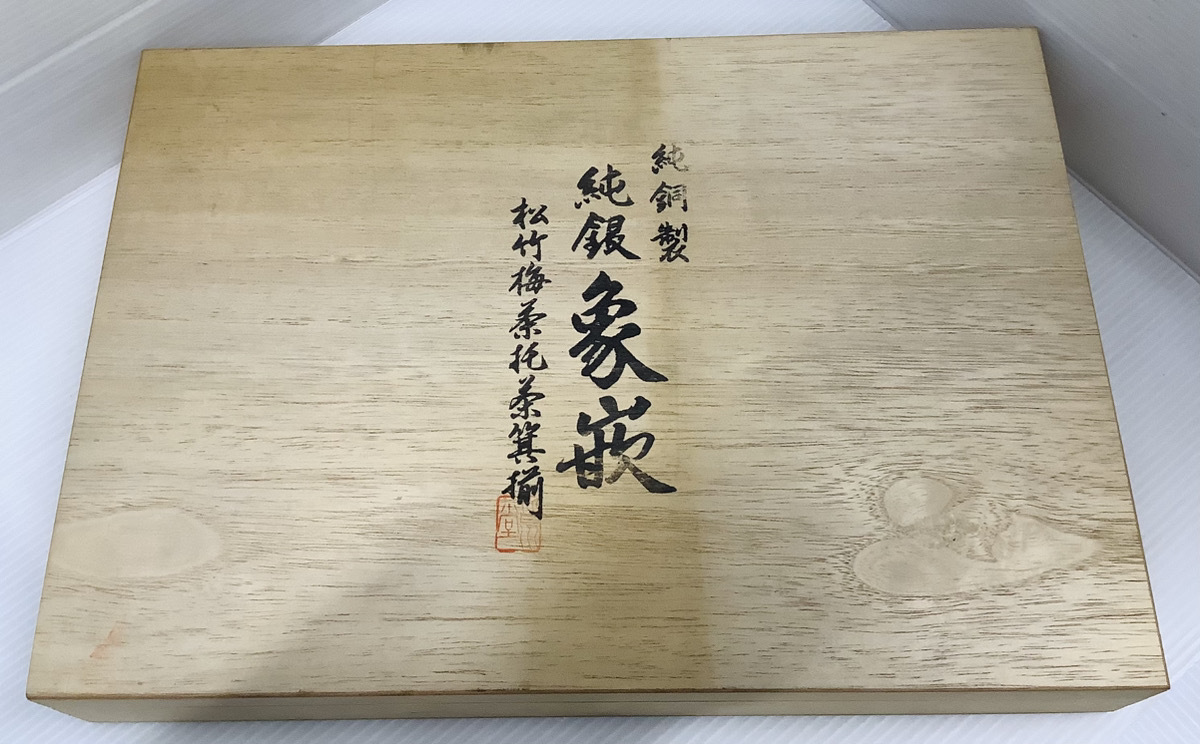 純銅製
純銀象嵌
松竹梅茶托茶箕揃